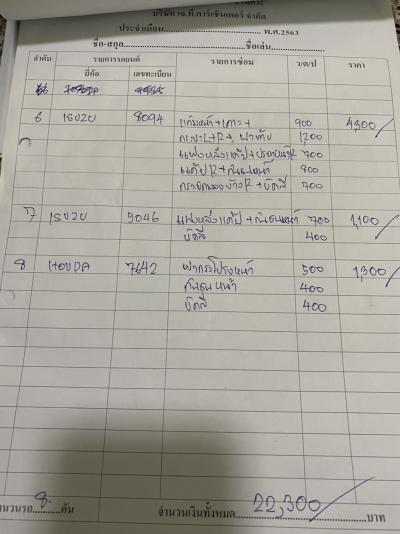 บริษัท เอ.ที.การ์เซ็นเตอร์ จำกัด
ประจำเดือน.................... พ.ศ.2563
ชื่อ-สกุล....................ชื่อเล่น....................
ลำดับ รายการรถยนต์ รายการซ่อม ว/ด/ป ราคา
ยี่ห้อ เลขทะเบียน
6 ISUZU 8094 แก้มหน้า + 900 4,300
กระจก L+R + 1,200
แผงหลังแค๊ป + R 700
แค๊ป R + กันชนหน้า 800
กระจกมองข้าง R + ขัดสี 700
7 ISUZU 5046 แผงหลังแค๊ป + กันชนหน้า 700 1,100
ขัดสี 400
8 HONDA 7642 ฝากระโปรงหน้า 500 1,300
กันชนหน้า 400
ขัดสี 400
จำนวนรถ 8 คัน จำนวนเงินทั้งหมด 22,300 บาท